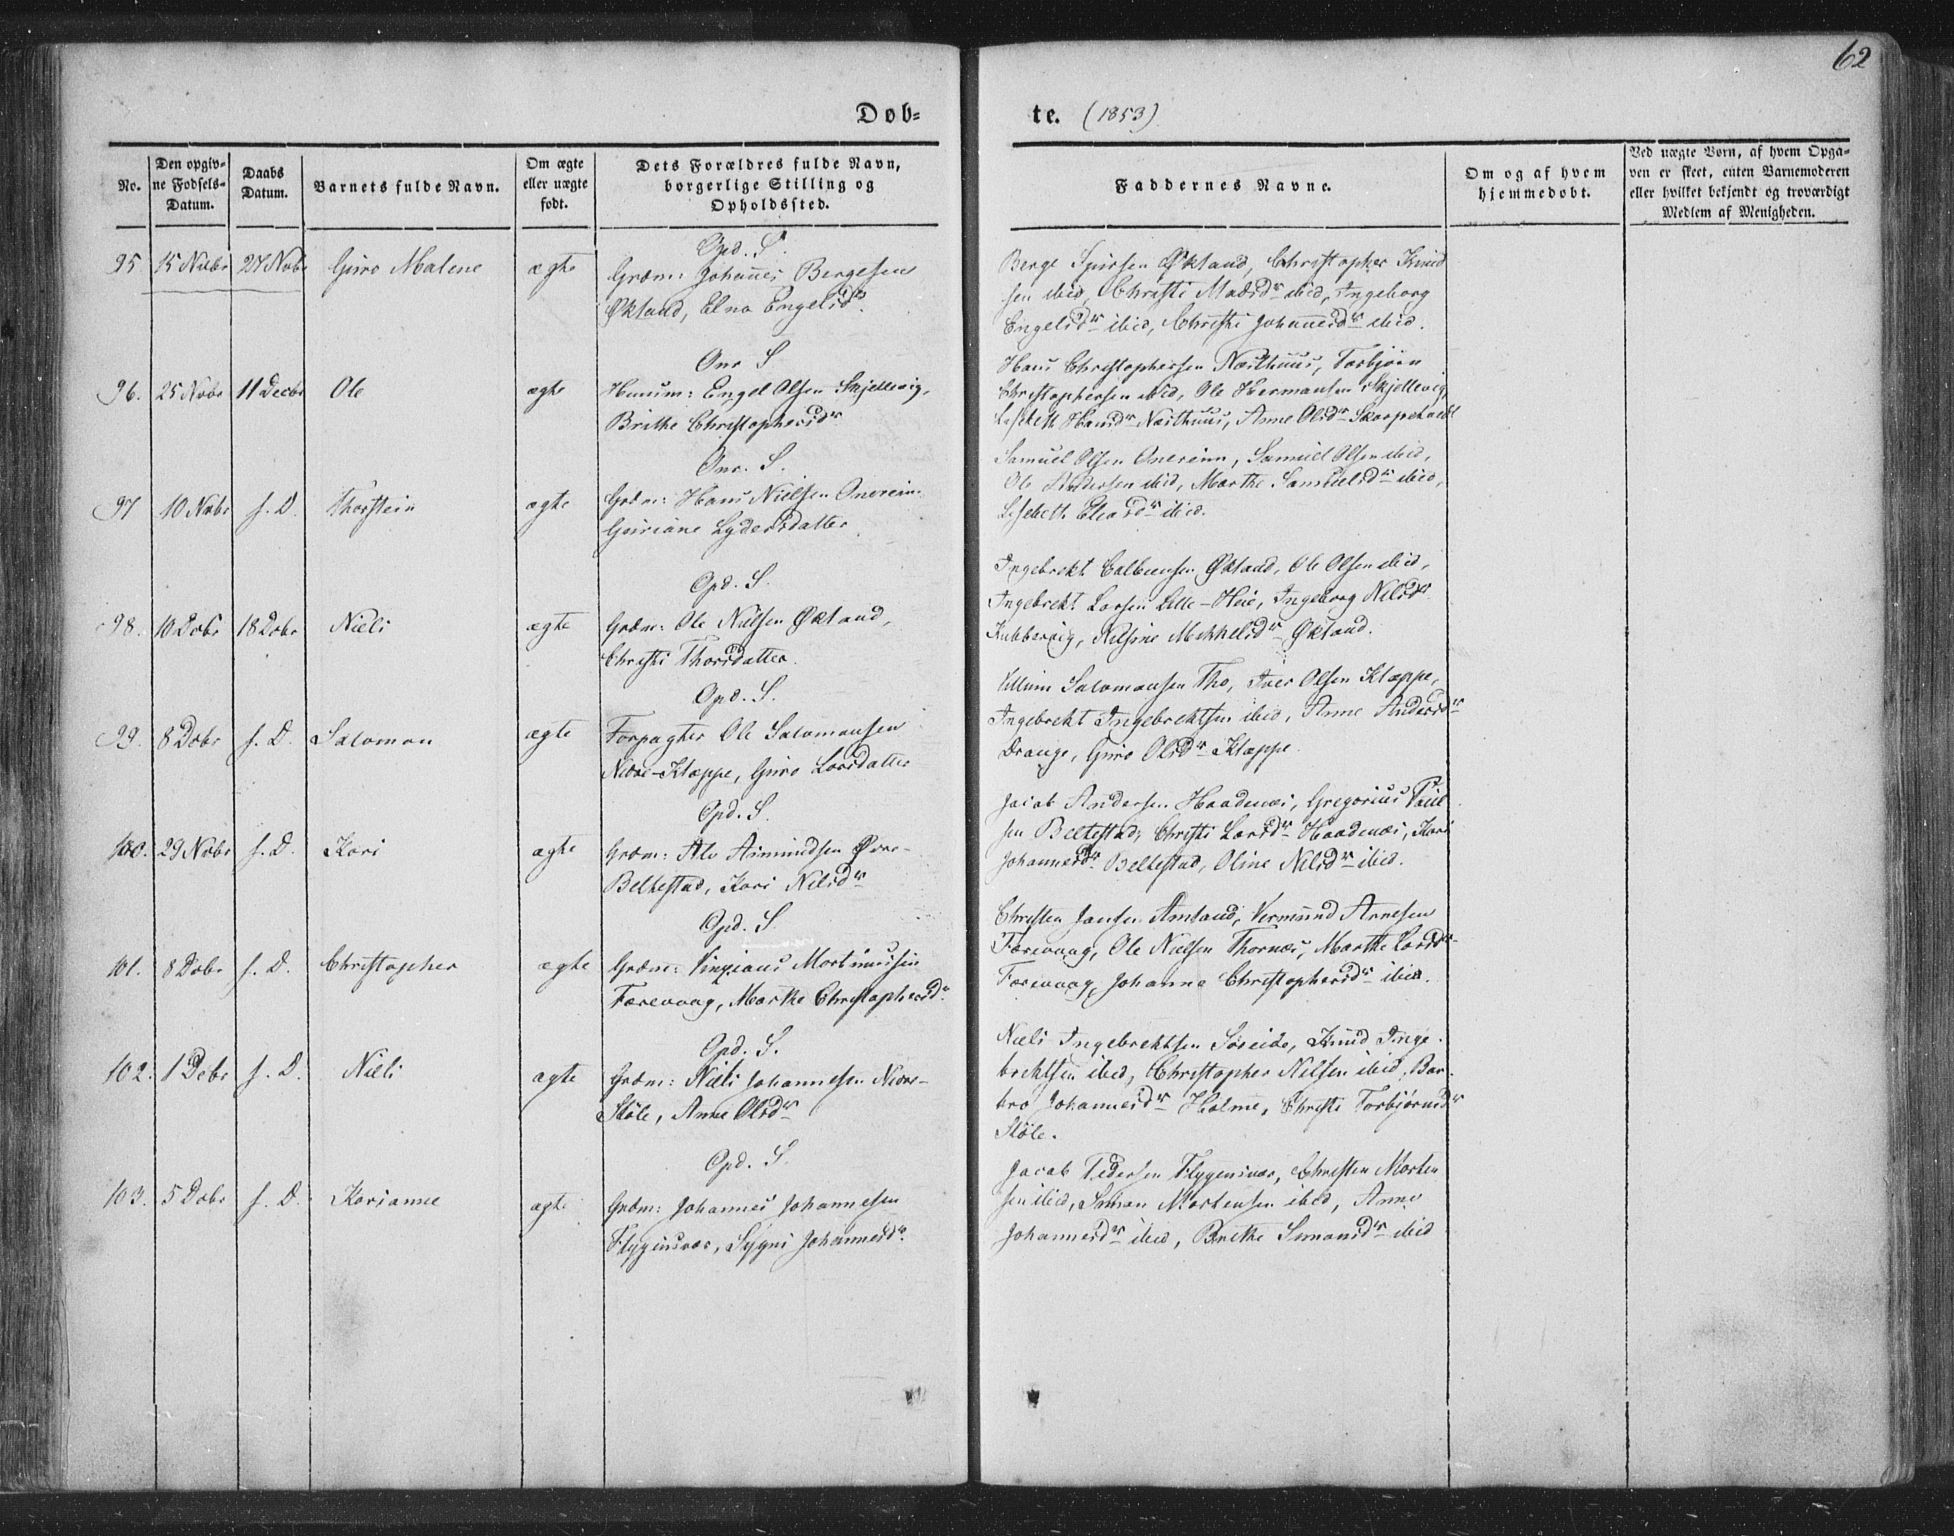 62
Døb-
te. (1853)
No.
Den opgiv-
ne Fødsels-
Datum.
Daabs
Datum.
Barnets fulde Navn.
Om ægte
eller uægte
født.
Dets Forældres fulde Navn,
borgerlige Stilling og
Opholdssted.
Faddernes Navne.
Om og af hvem
hjemmedøbt.
Ved uægte Børn, af hvem Opga-
ven er skeet, enten Barnemoderen
eller hvilket bekjendt og troværdigt
Medlem af Menigheden.
95 15 Nvbr 27 Nvbr Guro Malene ægte
Opd. S.
Grdm: Johannes Bergesen
Økland, Elna Engelsdr.
Berge Sjursen Økland, Christopher Knud
sen ibid, Christi Madsdr ibid, Ingeborg
Engelsdr ibid, Christi Johannesdr ibid.
96. 25 Nvbr 11 Decbr Ole ægte
Onr S
Huusm: Engel Olsen Skjellevig,
Brithe Christophersdr
Hans Christophersen Næsthuus, Torbjørn
Christophersen ibid, Ole Hermansen Skjellevig,
Lisebeth Hansdr Næsthuus, Anne Olsdr
97 10 Nvbr s. D. Thorstein ægte
Onr. S.
Grdm: Hans Nielsen Onereim
Guriane Lydersdatter
Samuel Olsen Onereim, Samuel Olsen ibid,
Ole Pedersen ibid, Marthe Samuelsdr ibid,
Lisebeth Eliasdr ibid.
98. 10 Dcbr 18 Dcbr Niels ægte
Opd. S.
Grdm: Ole Nielsen Økland,
Christi Thorsdatter.
Ingebrekt Økland, Ole Olsen ibid,
Ingebrekt Larsen Lille-Heie, Ingeborg Nilsdr
Kubbervig, Nilsine Mikkelsdr Økland.
99. 8 Dcbr s. D. Salomon ægte
Opd. S.
Forpagter Ole Salomonsen
Nedre-Klæppe, Guro Larsdatter
Villum Salomonsen Tho, Iver Olsen Klæppe,
Ingebrekt Ingebrektsen ibid, Anne Andersdr
Drange, Guro Olsdr Klæppe.
100. 29 Nvbr s. D. Kari ægte
Opd. S.
Grdm: Alv Asmundsen Øvre-
Beltestad, Kari Nilsdr
Jacob Andersen Haadenæs, Gregorius Paul
sen Beltestad, Christi Larsdr Haadenæs, Kari
Johannesdr Beltestad, Oline Nilsdr ibid.
101. 8 Dcbr s. D. Christopher ægte
Opd. S.
Grdm: Vinzians Mortmunsen
Færevaag, Marthe Christophersdr
Christen Jansen Amland, Vermund Arnesen
Færevaag, Ole Nielsen Thornæs, Marthe Larsdr
Færevaag, Johanne Christophersdr ibid.
102. 1 Dcbr s. D. Niels ægte
Opd. S.
Grdm: Niels Johannesen Nedre-
Støle, Anne Olsdr
Niels Ingebrektsen Søreide, Knud Inge-
brektsen ibid, Christopher Nilsen ibid, Bar-
bro Johannesdr Holme, Christi Torbjørnsdr
Støle.
103. 5 Dcbr s. D. Karianne ægte
Opd. S.
Grdm: Johannes Johannesen
Flygensvær, Sygni Johannesdr.
Jacob Pedersen Flygensvær, Christen Morten
sen ibid, Simon Mortensen ibid, Anne
Johannesdr ibid, Brithe Simonsdr ibid